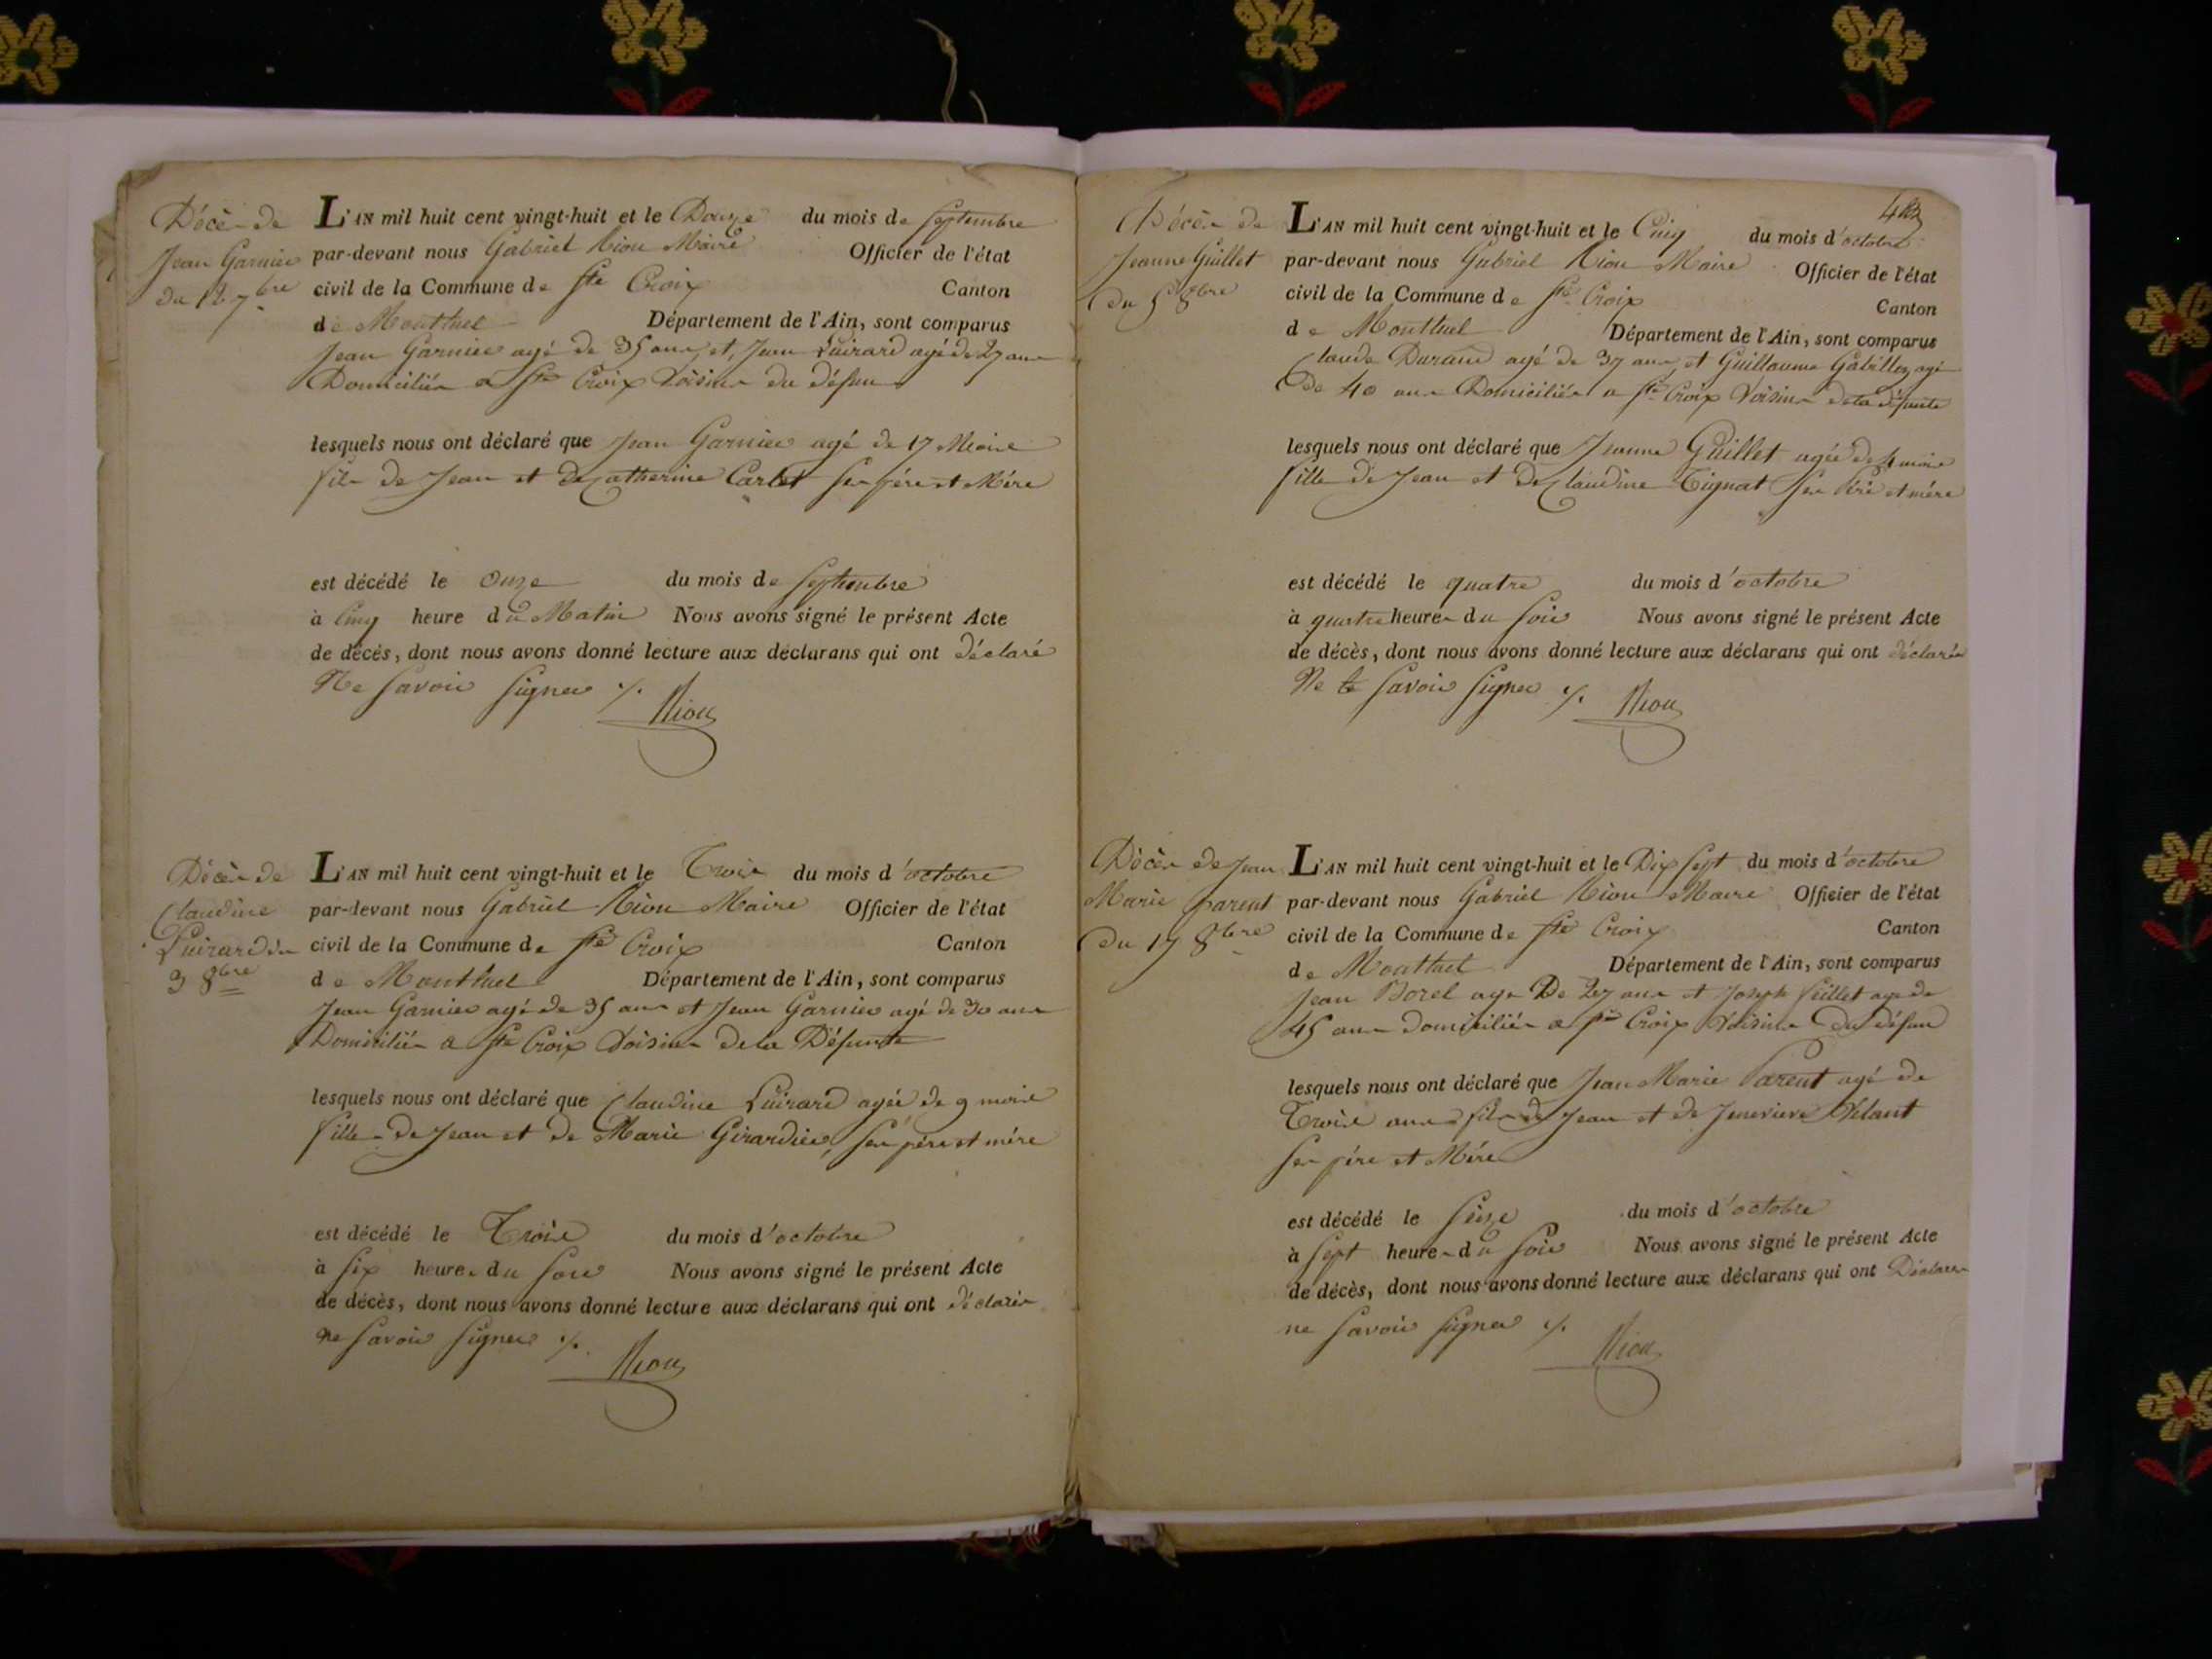 Décès de
Jean Garnier
du 12 7bre
L'AN mil huit cent vingt-huit et le Douze du mois de Septembre
par-devant nous Gabriel Riou Maire Officier de l'état
civil de la Commune de Ste Croix Canton
de Montluel Département de l'Ain, sont comparus
Jean Garnier agé de 35 ans, et, Jean Luirard agé de 27 ans
Domiciliés a Ste Croix Voisins du défun
lesquels nous ont déclaré que Jean Garnier agé de 17 Mois
fils de Jean et de Catherine Carlet Ses père et Mère
est décédé le Onze du mois de Septembre
à Cinq heure du Matin Nous avons signé le présent Acte
de décès, dont nous avons donné lecture aux déclarans qui ont déclaré
Ne Savoir Signer ./.
Riou
Décès de
Claudine
Luirard du
3 8bre
L'AN mil huit cent vingt-huit et le Trois du mois d'octobre
par-devant nous Gabriel Riou Maire Officier de l'état
civil de la Commune de Ste Croix Canton
de Montluel Département de l'Ain, sont comparus
Jean Garnier agé de 35 ans et Jean Garnier agé de 30 ans
Domiciliés a Ste Croix Voisins de la Défunte
lesquels nous ont déclaré que Claudine Luirard agée de 9 mois
fille de Jean et de Marie Girardier, Ses père et mère
est décédé le Trois du mois d'octobre
à Six heures du Soir Nous avons signé le présent Acte
de décès, dont nous avons donné lecture aux déclarans qui ont déclarés
ne Savoir Signer ./.
Riou
Décès de
Jeanne Guillet
du 5 8bre
L'AN mil huit cent vingt-huit et le Cinq du mois d'octobre
par-devant nous Gabriel Riou Maire Officier de l'état
civil de la Commune de Ste Croix Canton
de Montluel Département de l'Ain, sont comparus
Claude Durand agé de 37 ans, et Guillaume Gabillon agé
De 40 ans Domiciliés a Ste Croix Voisins de la défunte
lesquels nous ont déclaré que Jeanne Guillet agée de 4 mois
fille de Jean et de Claudine Tignat Ses Père et mère
est décédé le quatre du mois d'octobre
à quatre heures du Soir Nous avons signé le présent Acte
de décès, dont nous avons donné lecture aux déclarans qui ont déclarés
Ne Savoir Signer ./.
Riou
Décès de Jean
Marie parent
du 17 8bre
L'AN mil huit cent vingt-huit et le Dix Sept du mois d'octobre
par-devant nous Gabriel Riou Maire Officier de l'état
civil de la Commune de Ste Croix Canton
de Montluel Département de l'Ain, sont comparus
Jean Borel age De 27 ans et Joseph age de
45 ans domiciliés a Ste Croix Voisins du défun
lesquels nous ont déclaré que Jean Marie Parent agé de
Trois ans fils de Jean et de Jenevieve
Ses père et Mère
est décédé le Seize du mois d'octobre
à Sept heures du Soir Nous avons signé le présent Acte
de décès, dont nous avons donné lecture aux déclarans qui ont Déclarer
ne Savoir Signer ./.
Riou